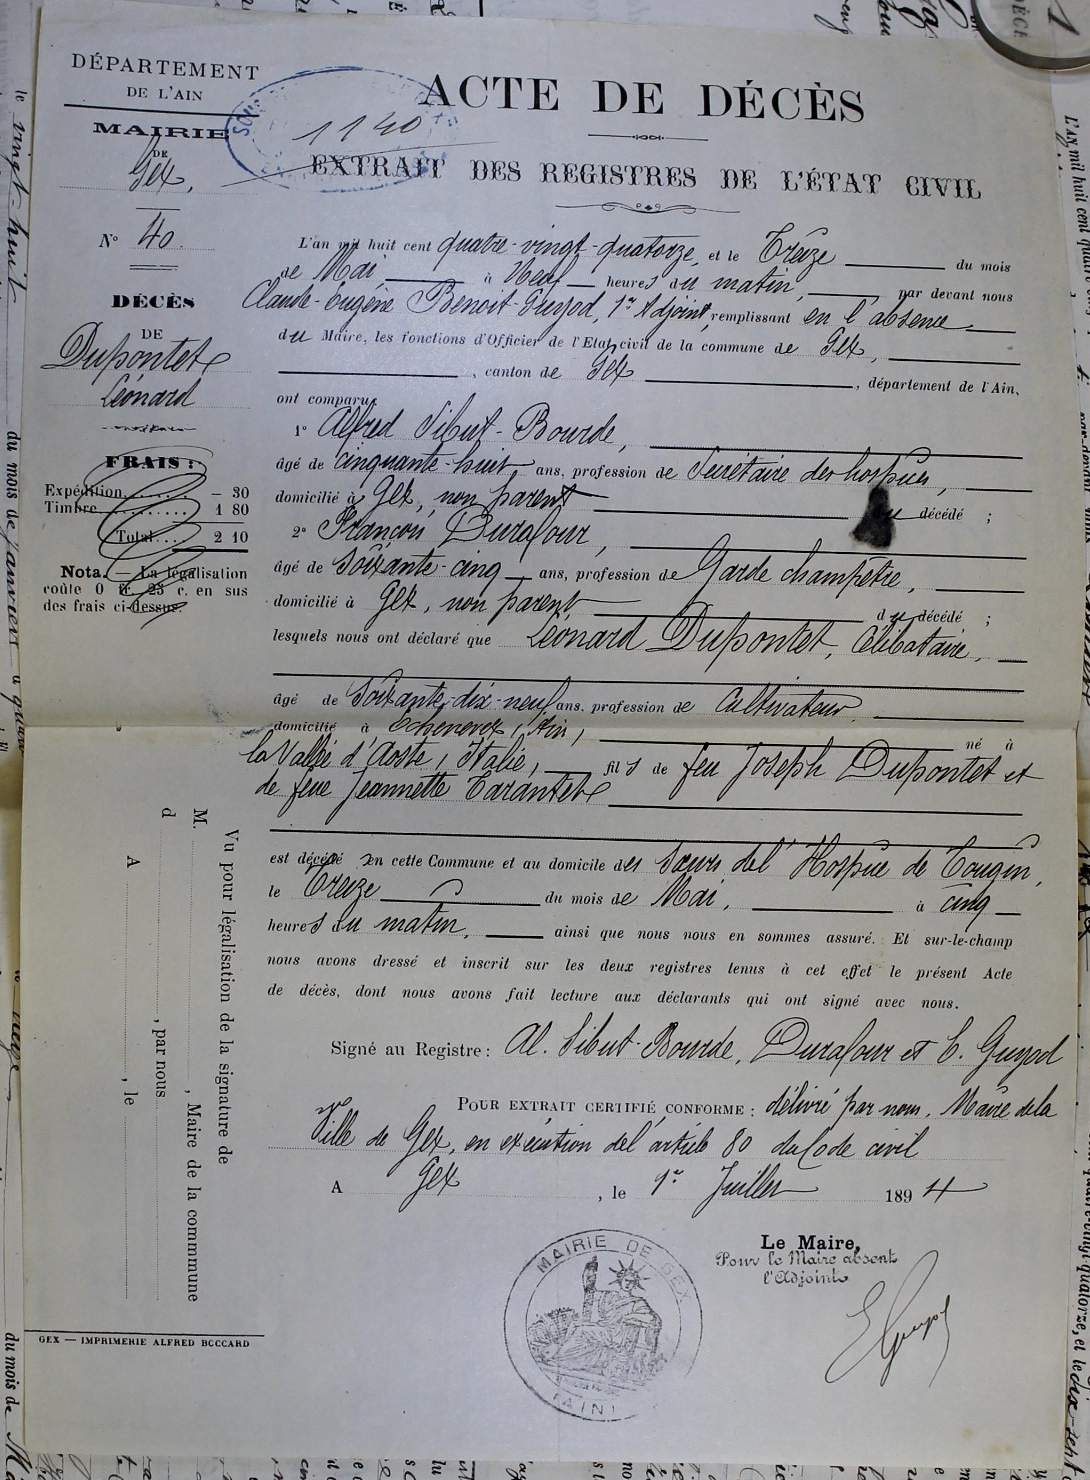 DÉPARTEMENT
DE L'AIN
MAIRIE
DE
Gex,
N° 40.
DÉCÈS
DE
Dupontet
Léonard
FRAIS :
Expédition........ — 30
Timbre........... 1 80
Total.... 2 10
Nota. — La légalisation
coûte 0 fr. 25 c. en sus
des frais ci-dessus.
ACTE DE DÉCÈS
1140
EXTRAIT DES REGISTRES DE L'ÉTAT CIVIL
L'an mil huit cent quatre-vingt-quatorze, et le Treize du mois
de Mai à Neuf heures du matin, par devant nous
Claude-Eugène Benoit-Guyod, 1er Adjoint, remplissant en l'absence
du Maire, les fonctions d'Officier de l'Etat civil de la commune de Gex,
, canton de Gex, département de l'Ain,
ont comparu
1° Alfred Sibut-Bourde,
âgé de cinquante-huit ans, profession de Secrétaire des hospices,
domicilié à Gex, non parent du décédé ;
2° François Durafour,
âgé de soixante-cinq ans, profession de Garde champêtre,
domicilié à Gex, non parent du décédé ;
lesquels nous ont déclaré que Léonard Dupontet, Célibataire,
âgé de soixante-dix-neuf ans, profession de Cultivateur
domicilié à Echenevex, Ain, né à
la Vallée d'Aoste, Italie, fils de feu Joseph Dupontet et
de feue Jeannette Tarantet
est décédé en cette Commune et au domicile des sœurs de l'Hospice de Tougin,
le Treize du mois de Mai, à cinq
heures du matin, ainsi que nous nous en sommes assuré. Et sur-le-champ
nous avons dressé et inscrit sur les deux registres tenus à cet effet le présent Acte
de décès, dont nous avons fait lecture aux déclarants qui ont signé avec nous.
Signé au Registre : Al. Sibut-Bourde, Durafour et E. Guyod
POUR EXTRAIT CERTIFIÉ CONFORME : délivré par nous, Maire de la
Ville de Gex, en exécution de l'article 80 du Code civil
A Gex, le 1er Juillet 1894
Le Maire,
Pour le Maire absent
l'Adjoint
E Guyod
MAIRIE DE GEX
(AIN)
Vu pour légalisation de la signature de
M. , Maire de la commmune
d , par nous
A , le
GEX — IMPRIMERIE ALFRED BOCCARD